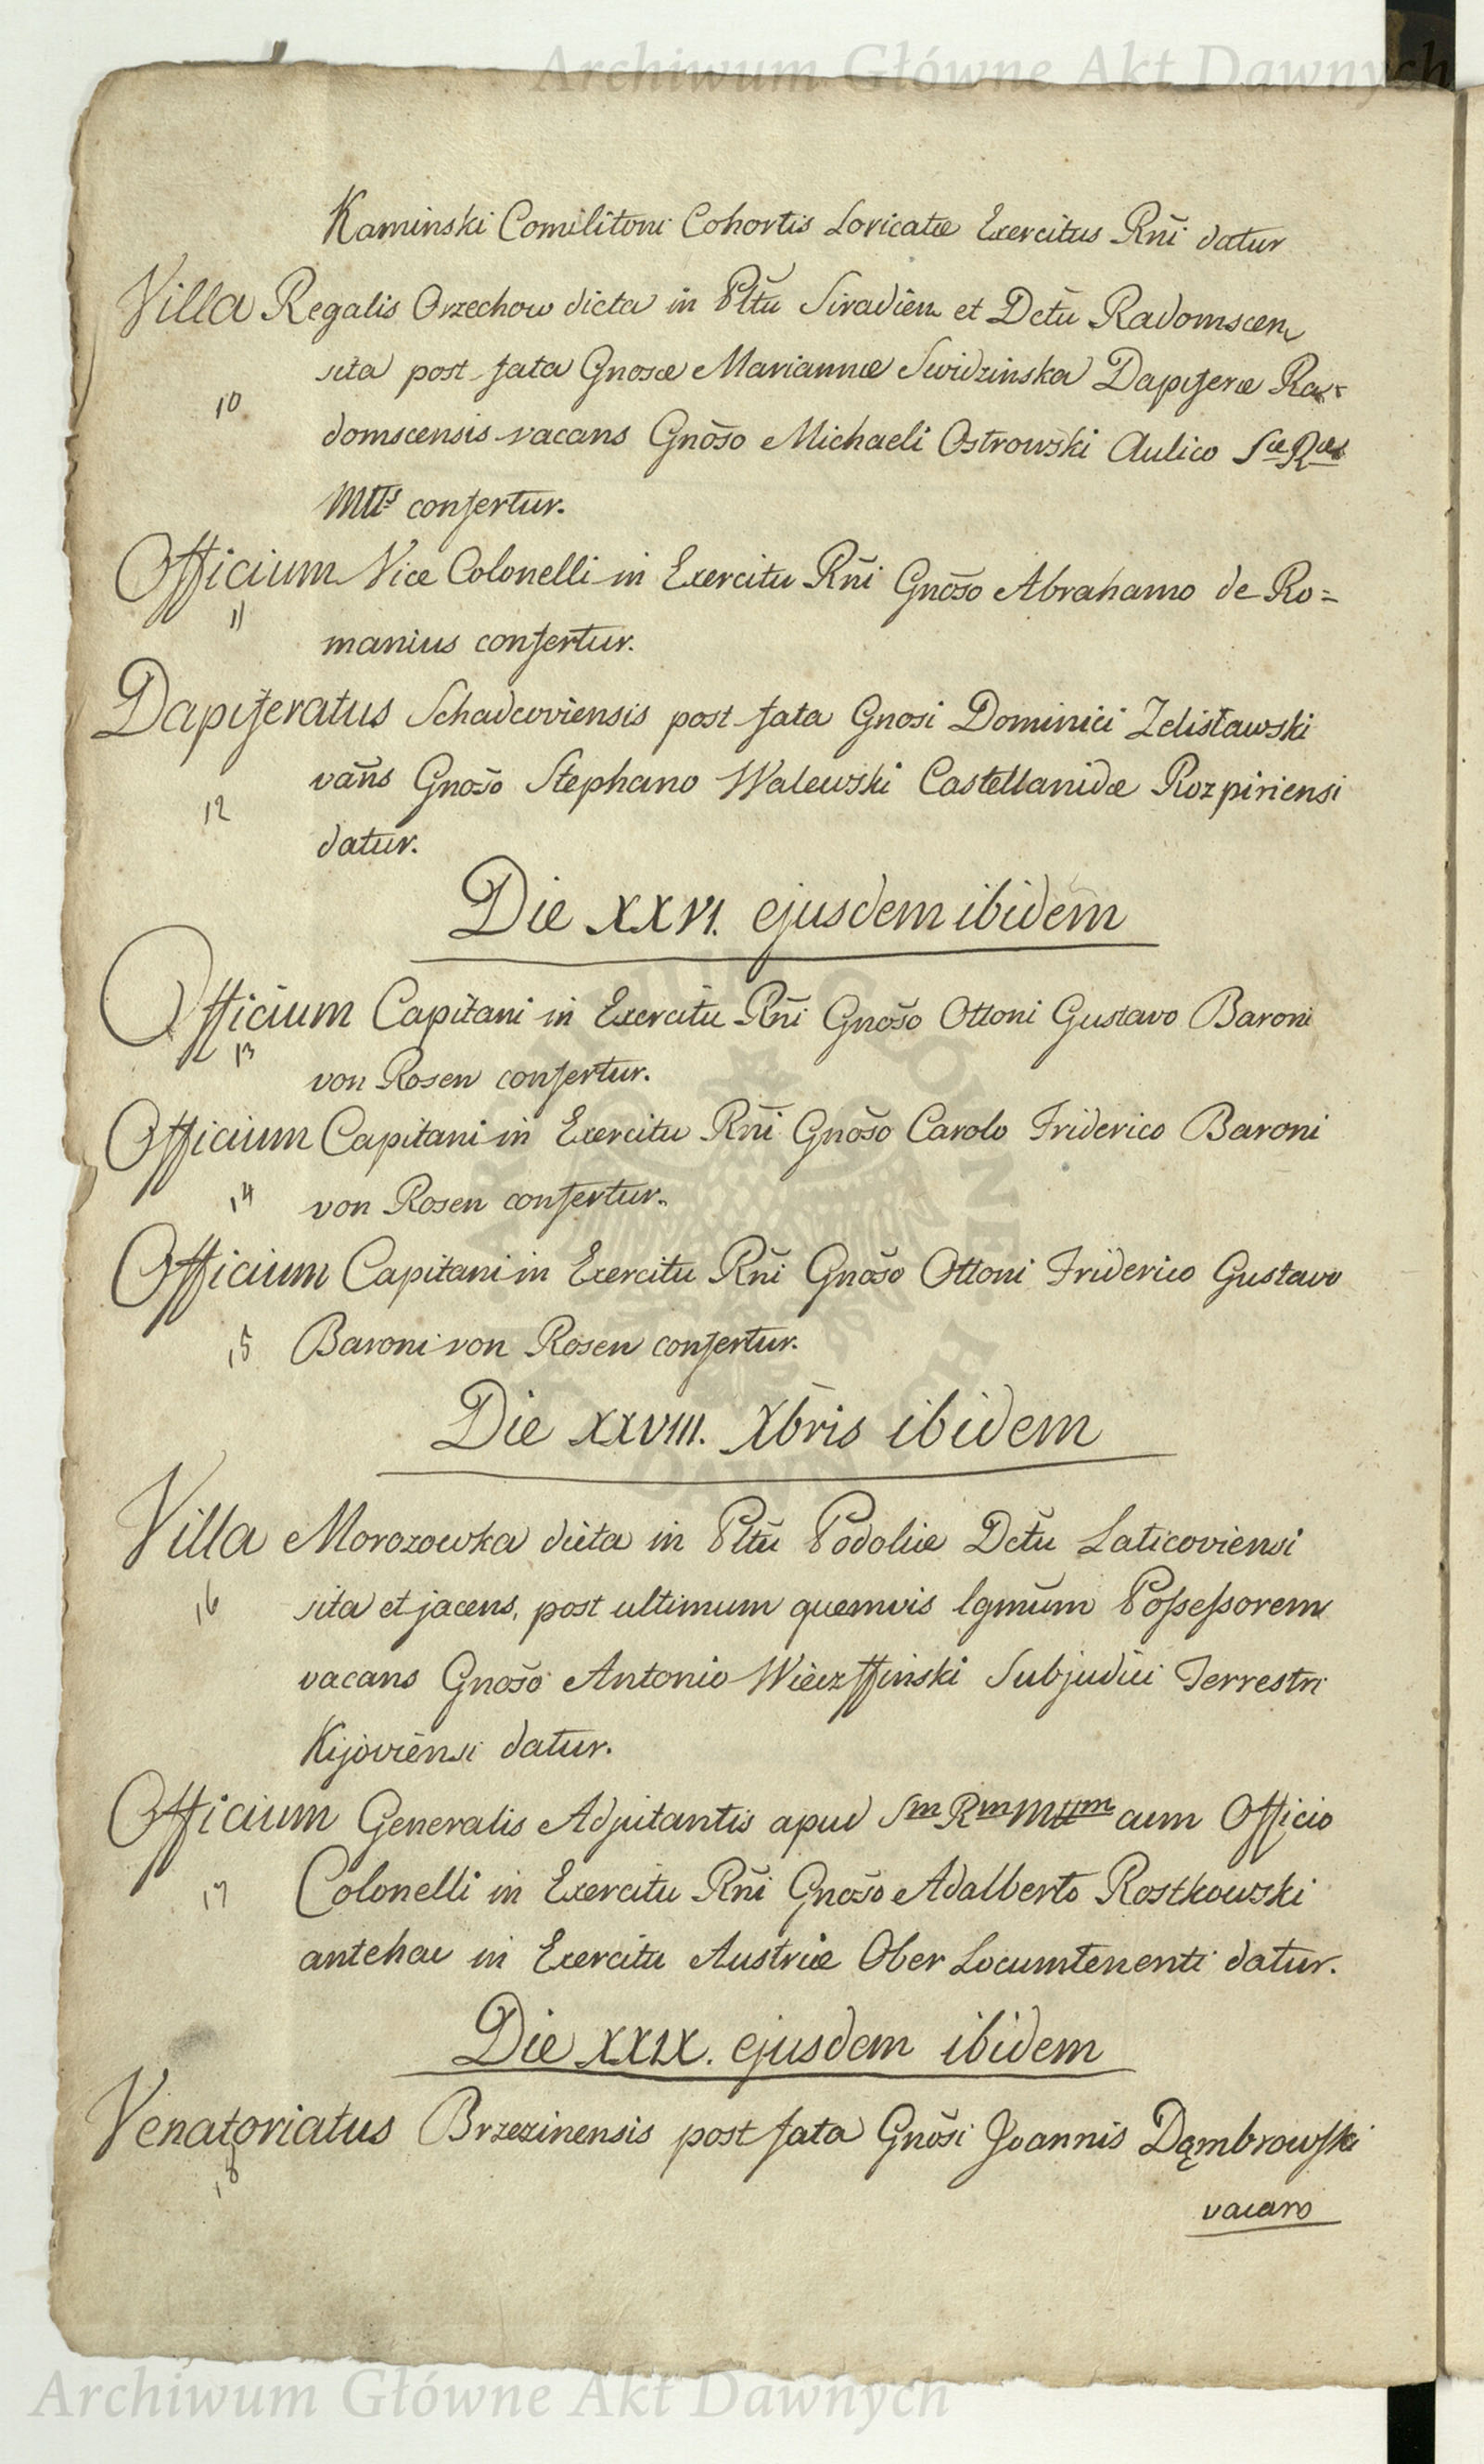 Archiwum Główne Akt Dawnych
Kaminski Comilitoni Cohortis Loricatæ Exercitus Rñi datur
Villa Regalis Orzechow dicta in Pltũ Siradien et Dctũ Radomscen
sita post fata Gnosæ Mariannæ Swidzinska Dapiferæ Ra-
10
domscensis vacans Gnõso Michaeli Ostrowski Aulico Sæ Ræ
Mttis confertur.
Officium Vice Colonelli in Exercitu Rñi Gnõso Abrahamo de Ro=
11
manius confertur.
Dapiferatus Schadcoviensis post fata Gnosi Dominici Zelisławski
vañs Gnõso Stephano Walewski Castellanidæ Rozpiriensi
12
datur.
Die XXVI. ejusdem ibidem
Officium Capitani in Exercitu Rñi Gnõso Ottoni Gustavo Baroni
13
von Rosen confertur.
Officium Capitani in Exercitu Rñi Gnõso Carolo Friderico Baroni
14 von Rosen confertur.
Officium Capitani in Exercitu Rñi Gnõso Ottoni Friderico Gustavo
15 Baroni von Rosen confertur.
Die XXVIII. Xbris ibidem
Villa Morozowka dicta in Pltũ Podoliæ Dctũ Laticoviensi
16 sita et jacens, post ultimum quemvis lgmũm Poſseſsorem
vacans Gnõso Antonio Subjudici Terrestri
Kijoviensi datur.
Officium Generalis Adjutantis apud Sm Rm Mttm cum Officio
17 Colonelli in Exercitu Rñi Gnõso Adalberto Rostkowski
antehac in Exercitu Austriæ Ober Locumtenenti datur.
Die XXIX. ejusdem ibidem
Venatoriatus Brzezinensis post fata Gnõsi Joannis Dąmbrowſki
18
vacans
Archiwum Główne Akt Dawnych